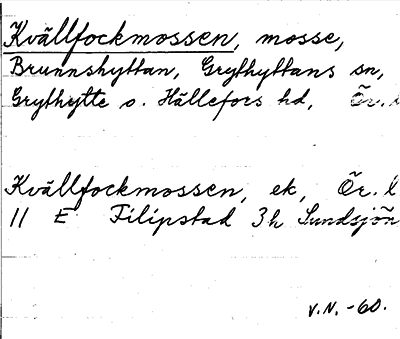 Kvällfockmossen, mosse,
Brunnshyttan, Grythyttans sn,
Grythytte o. Hällefors hd, Ör. l
Kvällfockmossen, ek, Ör. l
11 E Filipstad 3h Sundsjön
V.N. -60.